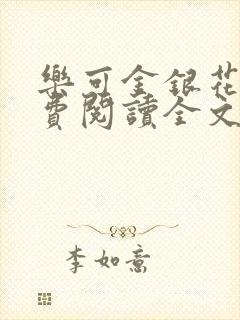 樂可金銀花
費閱讀全文
李如意